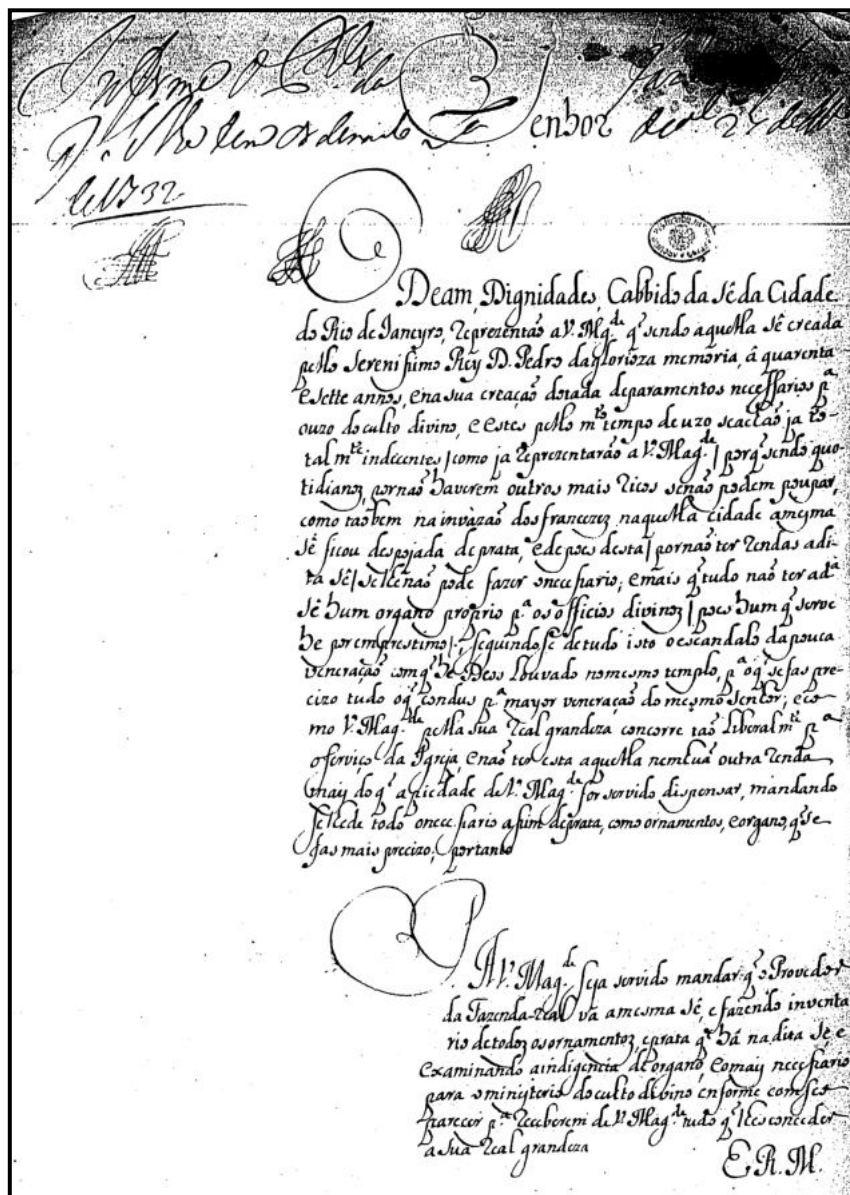 Informe o
Senhor
de 1732
Deam, Dignidades, Cabbido da Sê da Cidade
do Rio de Janeyro, reprezentaõ a V. Mg.de q̃ sendo aquella Sê creada
pello Serenissimo Rey D. Pedro da glorioza memória, â quarenta
e sette annos, e na sua creaçaõ dotada de paramentos necessarios p.a
o uzo do culto divino, e estes pello m.to tempo de uzo se achaõ ja to-
talm.te indecentes | como ja reprezentaraõ a V. Mag.de | porq̃ sendo quo-
tidianoz, por naõ haverem outros mais ricos senaõ podem poupar,
como taõbem na invàzaõ dos francezez naquella cidade a mesma
Sê ficou despojada de prata, e depoes desta | por naõ ter rendas a di-
ta Sê | se lhe naõ pode fazer o necessario; e mais q̃ tudo naõ ter a d.a
Sê hum organo proprio p.a os officios divinoz | poes hum q̃ serve
he por emprestimo |; seguindose de tudo isto o escandalo da pouca
veneraçaõ com q̃ he Deos louvado no mesmo templo, p.a o q̃ se fas pre-
cizo tudo o q̃ condus p.a mayor veneraçaõ do mesmo Senhor; e co-
mo V. Mag.de pella sua real grandeza concorre taõ liberalm.te p.a
o serviço da Igreja, e naõ ter esta aquella nem huã outra renda
mais do q̃ a piedade de V. Mag.de for servido dispensar, mandando
se lhe de todo o necessario assim de prata, como ornamentos, e organo, q̃ se
fas mais precizo; portanto
P. A V. Mag.de seja servido mandar q̃ o Provedor
da Fazenda real vâ a mesma Sê, e fazendo inventa
rio de todoz os ornamentoz, e prata q̃ hâ na dita Sê, e
examinando a indigencia de organo, e o mais necessario
para o ministerio do culto divino enforme com seo
parecer p.a receberem de V. Mag.de tudo q̃ lhes conceder
a sua real grandeza
E. R. M.